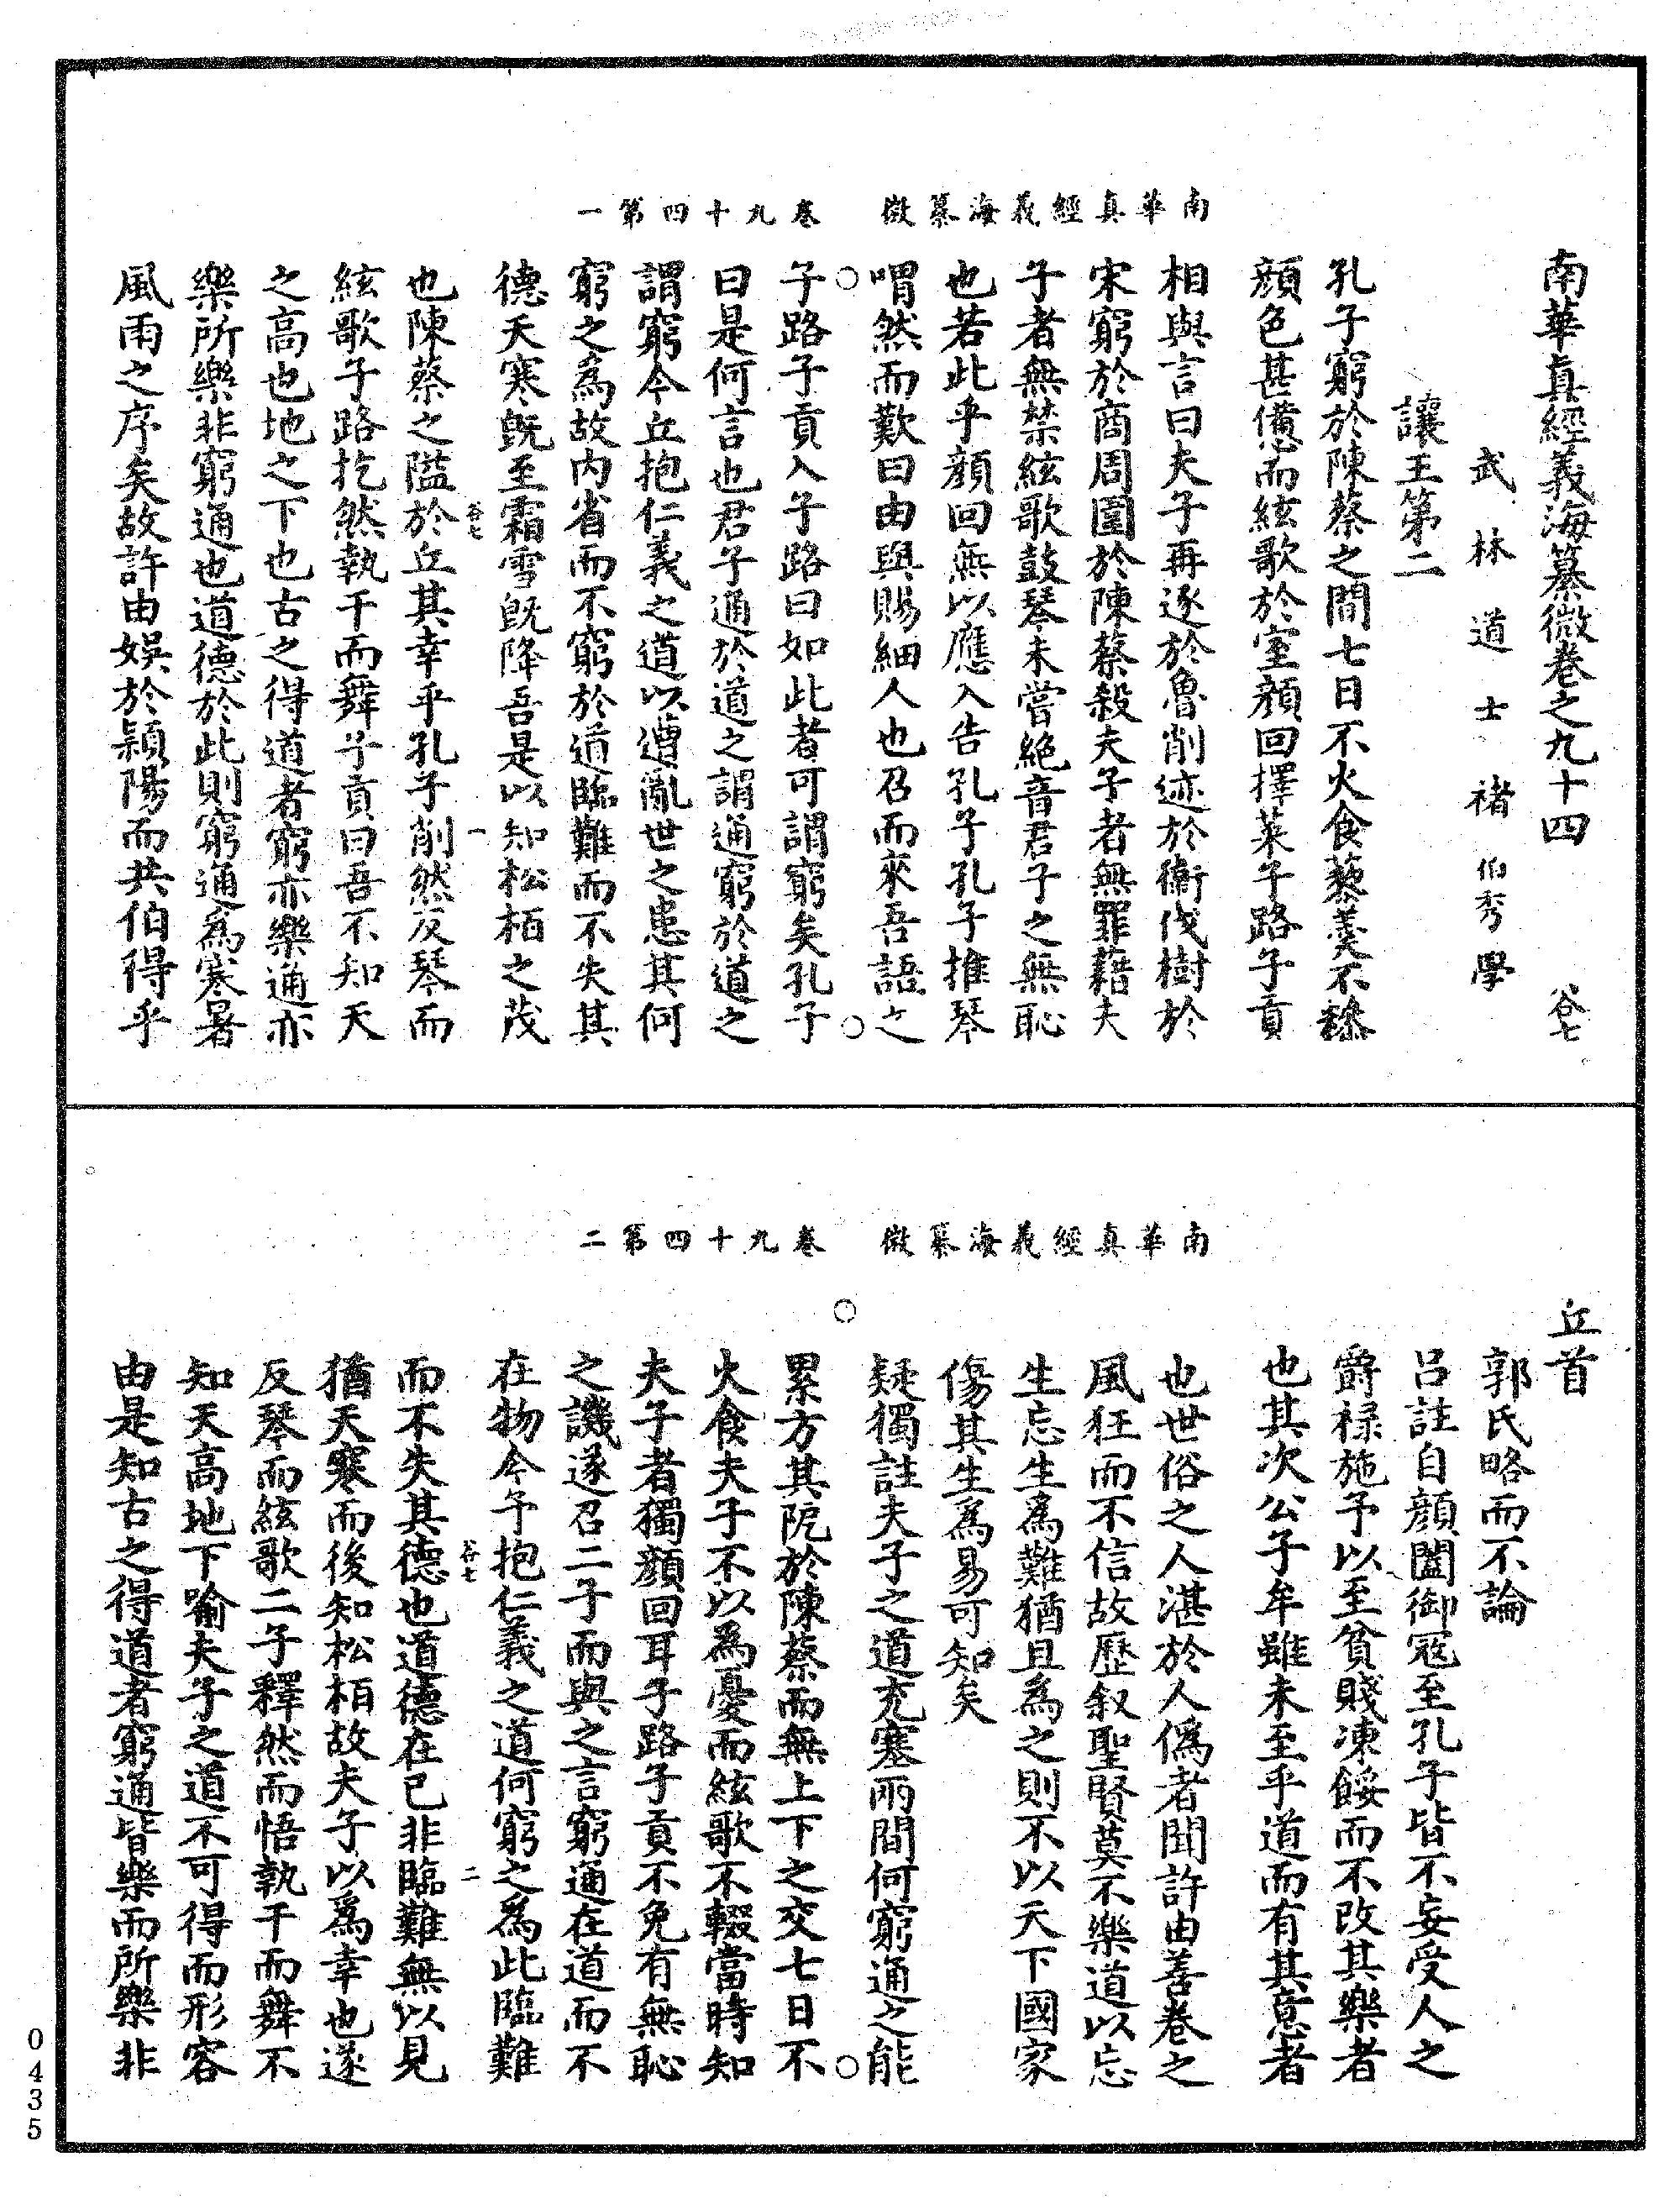 南華真經義海纂微卷之九十四　谷七
武林道士褚伯秀學
讓王第二
孔子窮於陳蔡之間七日不火食藜羹不糝
顏色甚憊而絃歌於室顏回擇菜子路子貢
相與言曰夫子再逐於魯削迹於衛伐樹於
宋窮於商周圍於陳蔡殺夫子者無罪藉夫
子者無禁絃歌鼓琴未嘗絕音君子之無恥
也若此乎顏回無以應入告孔子孔子推琴
喟然而歎曰由與賜細人也召而來吾語之
子路子貢入子路曰如此者可謂窮矣孔子
曰是何言也君子通於道之謂通窮於道之
謂窮今丘抱仁義之道以遭亂世之患其何
窮之為故內省而不窮於道臨難而不失其
德天寒既至霜雪既降吾是以知松柏之茂
也陳蔡之隘於丘其幸乎孔子削然反琴而
絃歌子路扢然執干而舞子貢曰吾不知天
之高也地之下也古之得道者窮亦樂通亦
樂所樂非窮通也道德於此則窮通為寒暑
風雨之序矣故許由娛於潁陽而共伯得乎
南華真經義海纂微　卷九十四第一
谷七　一
丘首
郭氏略而不論
呂註自顏闔御寇至孔子皆不妄受人之
爵祿施予以至貧賤凍餒而不改其樂者
也其次公子牟雖未至乎道而有其意者
也世俗之人湛於人偽者聞許由善卷之
風狂而不信故歷叙聖賢莫不樂道以忘
生忘生為難猶且為之則不以天下國家
傷其生為易可知矣
疑獨註夫子之道充塞兩間何窮通之能
累方其阨於陳蔡而無上下之交七日不
火食夫子不以為憂而絃歌不輟當時知
夫子者獨顏回耳子路子貢不免有無恥
之譏遂召二子而與之言窮通在道而不
在物今予抱仁義之道何窮之為此臨難
而不失其德也道德在已非臨難無以見
猶天寒而後知松柏故夫子以為幸也遂
反琴而絃歌二子釋然而悟執干而舞不
知天高地下喻夫子之道不可得而形容
由是知古之得道者窮通皆樂而所樂非
南華真經義海纂微　卷九十四第二
谷七　二
0435